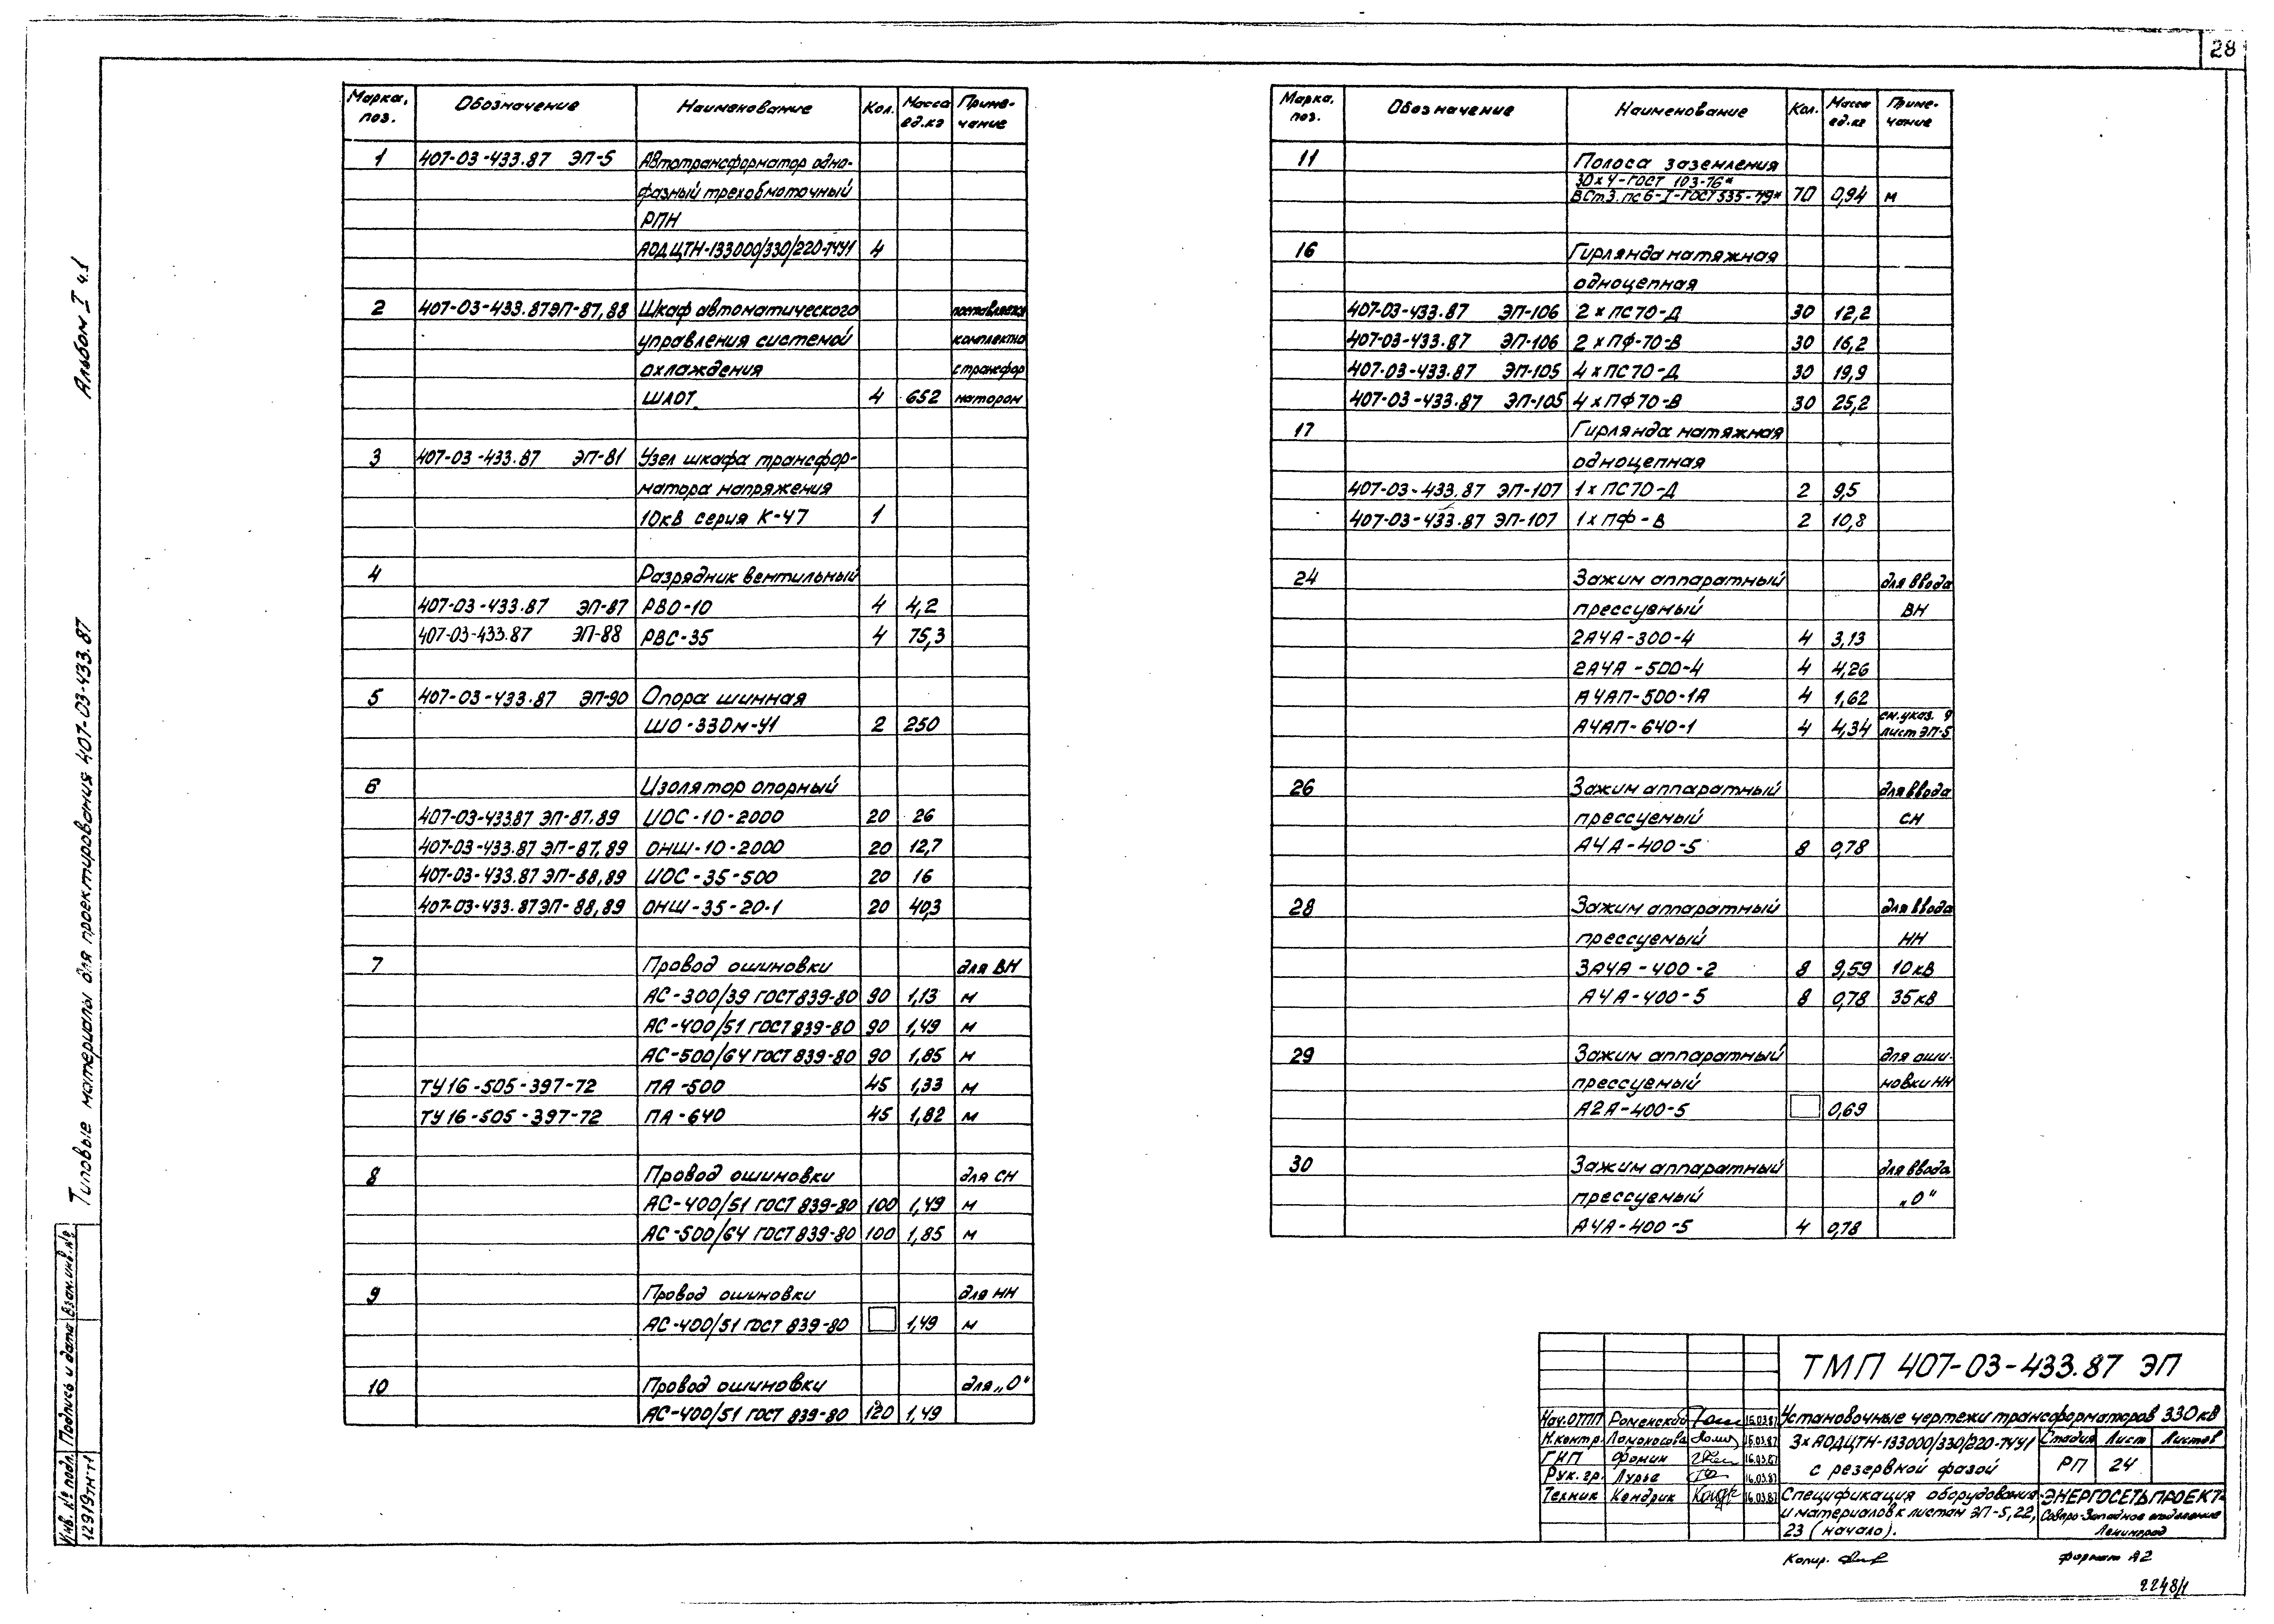 28
Марка, поз. Обозначение Наименование Кол. Масса ед.кг Приме-чание
1 407-03-433.87 ЭП-5 Автотрансформатор одно-
фазный трехобмоточный
РПН
АОДЦТН-133000/330/220-74У1 4
2 407-03-433.87ЭП-87,88 Шкаф автоматического поставляется
управления системой комплектно
охлаждения с трансфор
ШАОТ 4 652 матором
3 407-03-433.87 ЭП-81 Узел шкафа трансфор-
матора напряжения
10кв серия К-47 1
4 Разрядник вентильный
407-03-433.87 ЭП-87 РВО-10 4 4,2
407-03-433.87 ЭП-88 РВС-35 4 75,3
5 407-03-433.87 ЭП-90 Опора шинная
ШО-330м-У1 2 250
6 Изолятор опорный
407-03-433.87 ЭП-87.89 ИОС-10-2000 20 26
407-03-433.87 ЭП-87,89 ОНШ-10-2000 20 12,7
407-03-433.87 ЭП-88,89 ИОС-35-500 20 16
407-03-433.87ЭП-88,89 ОНШ-35-20-1 20 40,3
7 Провод ошиновки для ВН
АС-300/39 ГОСТ839-80 90 1,13 м
АС-400/51 ГОСТ 839-80 90 1,49 м
АС-500/64 ГОСТ 839-80 90 1,85 м
ТУ16-505-397-72 ПА-500 45 1,33 м
ТУ16-505-397-72 ПА-640 45 1,82 м
8 Провод ошиновки для СН
АС-400/51 ГОСТ 839-80 100 1,49 м
АС-500/64 ГОСТ 839-80 100 1,85 м
9 Провод ошиновки для НН
АС-400/51 ГОСТ 839-80 1,49 м
10 Провод ошиновки для „О"
АС-400/51 ГОСТ 839-80 120 1,49
Марка, поз. Обозначение Наименование Кол. Масса ед.кг Приме-чание
11 Полоса заземления
30х4-ГОСТ 103-76*
ВСт.3.пс6-I-ГОСТ535-79* 70 0,94 м
16 Гирлянда натяжная
одноцепная
407-03-433.87 ЭП-106 2хПС70-Д 30 12,2
407-03-433.87 ЭП-106 2хПФ-70-В 30 16,2
407-03-433.87 ЭП-105 4хПС70-Д 30 19,9
407-03-433.87 ЭП-105 4хПФ70-В 30 25,2
17 Гирлянда натяжная
одноцепная
407-03-433.87 ЭП-107 1хПС70-Д 2 9,5
407-03-433.87 ЭП-107 1хПФ-В 2 10,8
24 Зажим аппаратный для ввода
прессуемый ВН
2А4А-300-4 4 3,13
2А4А-500-4 4 4,26
А4АП-500-1А 4 1,62
А4АП-640-1 4 4,34 см.указ. 9 лист ЭП-5
26 Зажим аппаратный для ввода
прессуемый СН
А4А-400-5 8 0,78
28 Зажим аппаратный для ввода
прессуемый НН
3А4А-400-2 8 9,59 10кв
А4А-400-5 8 0,78 35кв
29 Зажим аппаратный для оши-
прессуемый новки НН
А2А-400-5 0,69
30 Зажим аппаратный для ввода
прессуемый „О"
А4А-400-5 4 0,78
Альбом I ч.1
Типовые материалы для проектирования 407-03-433.87
Инв.№ подл. Подпись и дата Взам.инв.№
12919тм-т1
ТМП 407-03-433.87 ЭП
Нач.ОТП Роменский 16.03.87 Установочные чертежи трансформаторов 330кв
Н.контр. Ломоносова 16.03.87 3хАОДЦТН-133000/330/220-74У1 Стадия Лист Листов
ГИП Фомин 16.03.87 с резервной фазой РП 24
Рук.гр. Лурье 16.03.87
Техник Кондрик 16.03.87 Спецификация оборудования ЭНЕРГОСЕТЬПРОЕКТ
и материалов к листам ЭП-5,22, Северо-Западное отделение
23 (начало). Ленинград
Копир. Формат А2
2248/1